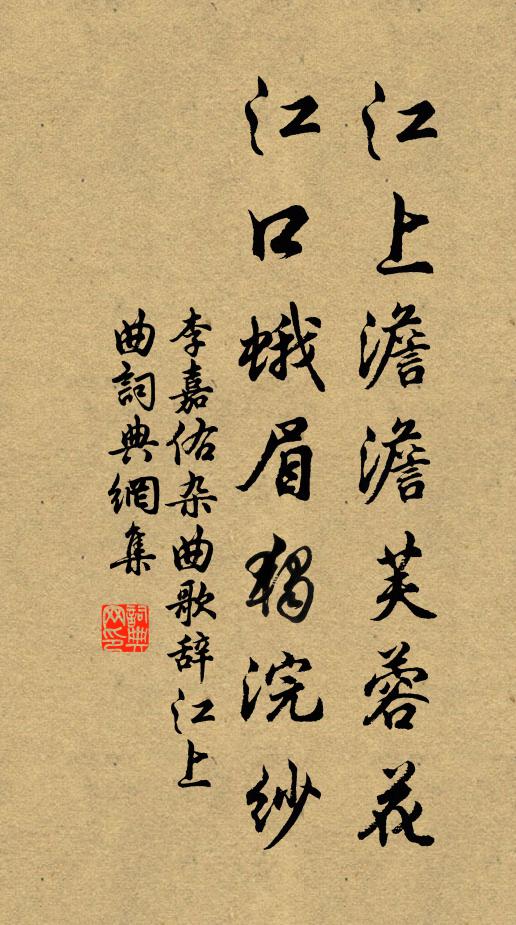 江上澹澹芙蓉花
江口蛾眉獨浣紗
李嘉佑杂曲歌辞江上
曲詞典網集
詞典網印